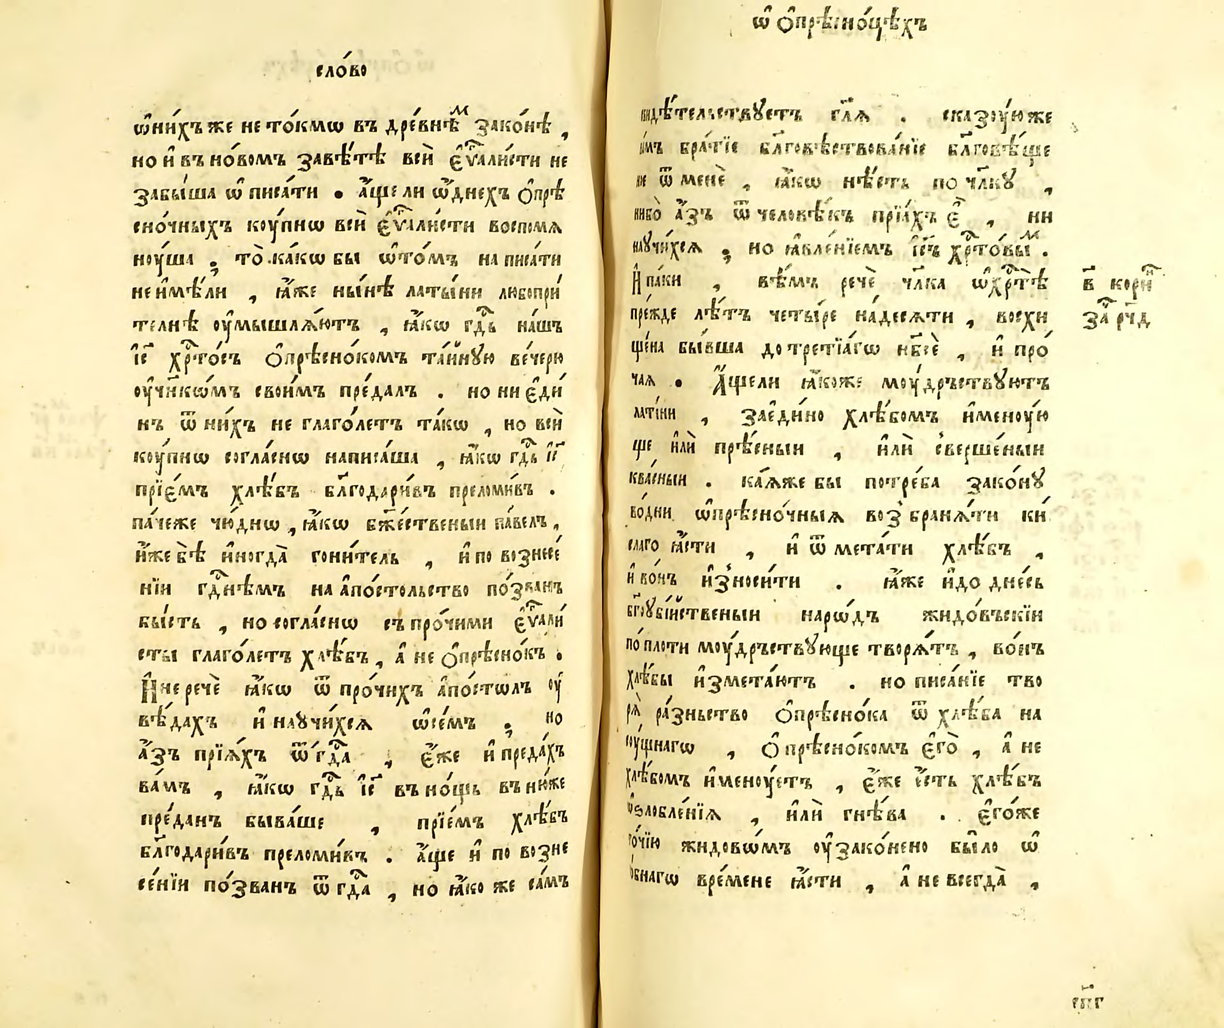 сло́во
ѿни́хъже нето́кмѡ въ дре́внѣⷨ зако́нѣ ,
но и҆ въ но́вомъ завѣ́тѣ всѝ є҆ѵⷢ҇али́сти не
забы́ша ѡ҆писа́ти . а҆́ще ли ѿднехъ ѻ҆прѣ
сно́чныхъ коу́пнѡ всѝ є҆ѵⷢ҇али́сти воспомѧ
ноу́ша , то̀ ка́кѡ бы ѡ҆то́мъ написа́ти
неи҆мѣ́ли , ꙗ҆́же ны́нѣ латы́ни любопри́
телнѣ оу҆мышлѧ́ютъ , ꙗ҆́кѡ гдⷭ҇ь на́шъ
і҆с҃ хрⷭ҇то́съ ѻ҆прѣсно́комъ та́йнꙋю ве́черю
оу҆ч҃нкѡ́мъ свои́мъ пре́далъ . но ни є҆ди́
нъ ѿ ни́хъ не глаго́летъ та́кѡ , но всѝ
коу́пнѡ согла́снѡ написа́ша , ꙗ҆́кѡ гдⷭ҇ь і҆с҃
прїе́мъ хлѣ́бъ бл҃годари́въ преломи́въ .
па́чеже чю́днѡ , ꙗ҆́кѡ бж҃е́ственыи па́велъ ,
и҆́жебѣ̀ и҆ногда̀ гони́тель , и҆ по вознесе́
нїи гдⷭ҇нѣмъ на а҆по́стольство по́званъ
бы́сть , но согла́снѡ съ про́чими є҆ѵⷢ҇али́
сты глаго́летъ хлѣ́бъ , а҆ не ѻ҆прѣсно́къ .
И҆ не речѐ ꙗ҆́кѡ ѿ про́чихъ а҆по́столъ оу҆
вѣ́дахъ и҆ наꙋчи́хсѧ ѡ҆се́мъ , но
а҆́зъ прїѧ́хъ ѿ гдⷭ҇а , є҆́же и҆ преда́хъ
ва́мъ , ꙗ҆́кѡ гдⷭ҇ь і҆с҃ въ но́щь въ ню́же
пре́данъ быва́ше , прїе́мъ хлѣ́бъ
бл҃годари́въ преломи́въ . а҆́ще и҆ по возне
се́нїи по́званъ ѿ гдⷭ҇а , но ꙗ҆́ко же са́мъ
ѡ҆ ѻ҆прѣсно́цѣхъ
видѣ́тельствꙋетъ гл҃ѧ . сказоу́ю же
и҆мъ бра́тїе бл҃говѣствова́нїе бл҃говѣ́ще
ное ѿ менѐ , ꙗ҆́кѡ нѣ́сть по чл҃кꙋ ,
нибо̀ а҆́зъ ѿ человѣ́къ прїѧ́хъ є҆̀ , ни
наꙋчи́хсѧ , но ꙗ҆вле́нїемъ і҆с҃ъ хрⷭ҇то́выⷨ .
И҆ па́ки , вѣ́мъ речѐ чл҃ка ѡ҆хрⷭ҇тѣ̀
пре́жде лѣ́тъ четы́ре на́десѧти , восхи
ще́на бы́вша до тре́тїѧгѡ нб҃сѐ , и҆ про́
чаѧ . А҆́щели ꙗ҆́коже моу́дръствꙋютъ
лати́ни , заеди́но хлѣ́бомъ и҆меноу́ю
ще и҆лѝ прѣ́сныи , и҆лѝ сверше́ныи
ква́сныи . ка́ѧже бы потре́ба зако́нꙋ
во́дни ѡ҆прѣсно́чныѧ возбранѧ́ти ки́
слаго ꙗ҆́сти , и҆ ѿмета́ти хлѣ́бъ ,
и҆ во́нъ и҆зноси́ти . ꙗ҆́же и҆до дне́сь
бг҃оꙋбі́йственыи наро́дъ жидо́въскїи
по пло́ти моу́дръствꙋюще творѧ́тъ , во́нъ
хлѣ́бы и҆змета́ютъ . но писа́нїе тво
рѧ̀ ра́зньство ѻ҆прѣсно́ка ѿ хлѣ́ба на
соу́щнагѡ , ѻ҆прѣсно́комъ є҆го̀ , а҆ не
хлѣ́бомъ и҆меноу́етъ , є҆́же є҆́сть хлѣ́бъ
ѡ҆ѕлобле́нїѧ , и҆лѝ гнѣ́ва . є҆го́же
то́чїю жидовѡ́мъ оу҆зако́нено бы́ло ѡ҆
вре́мене ꙗ҆́сти , а҆ не всегда̀ ,
в҃ кориⷩ
за҃ рч҃д
сп҃г